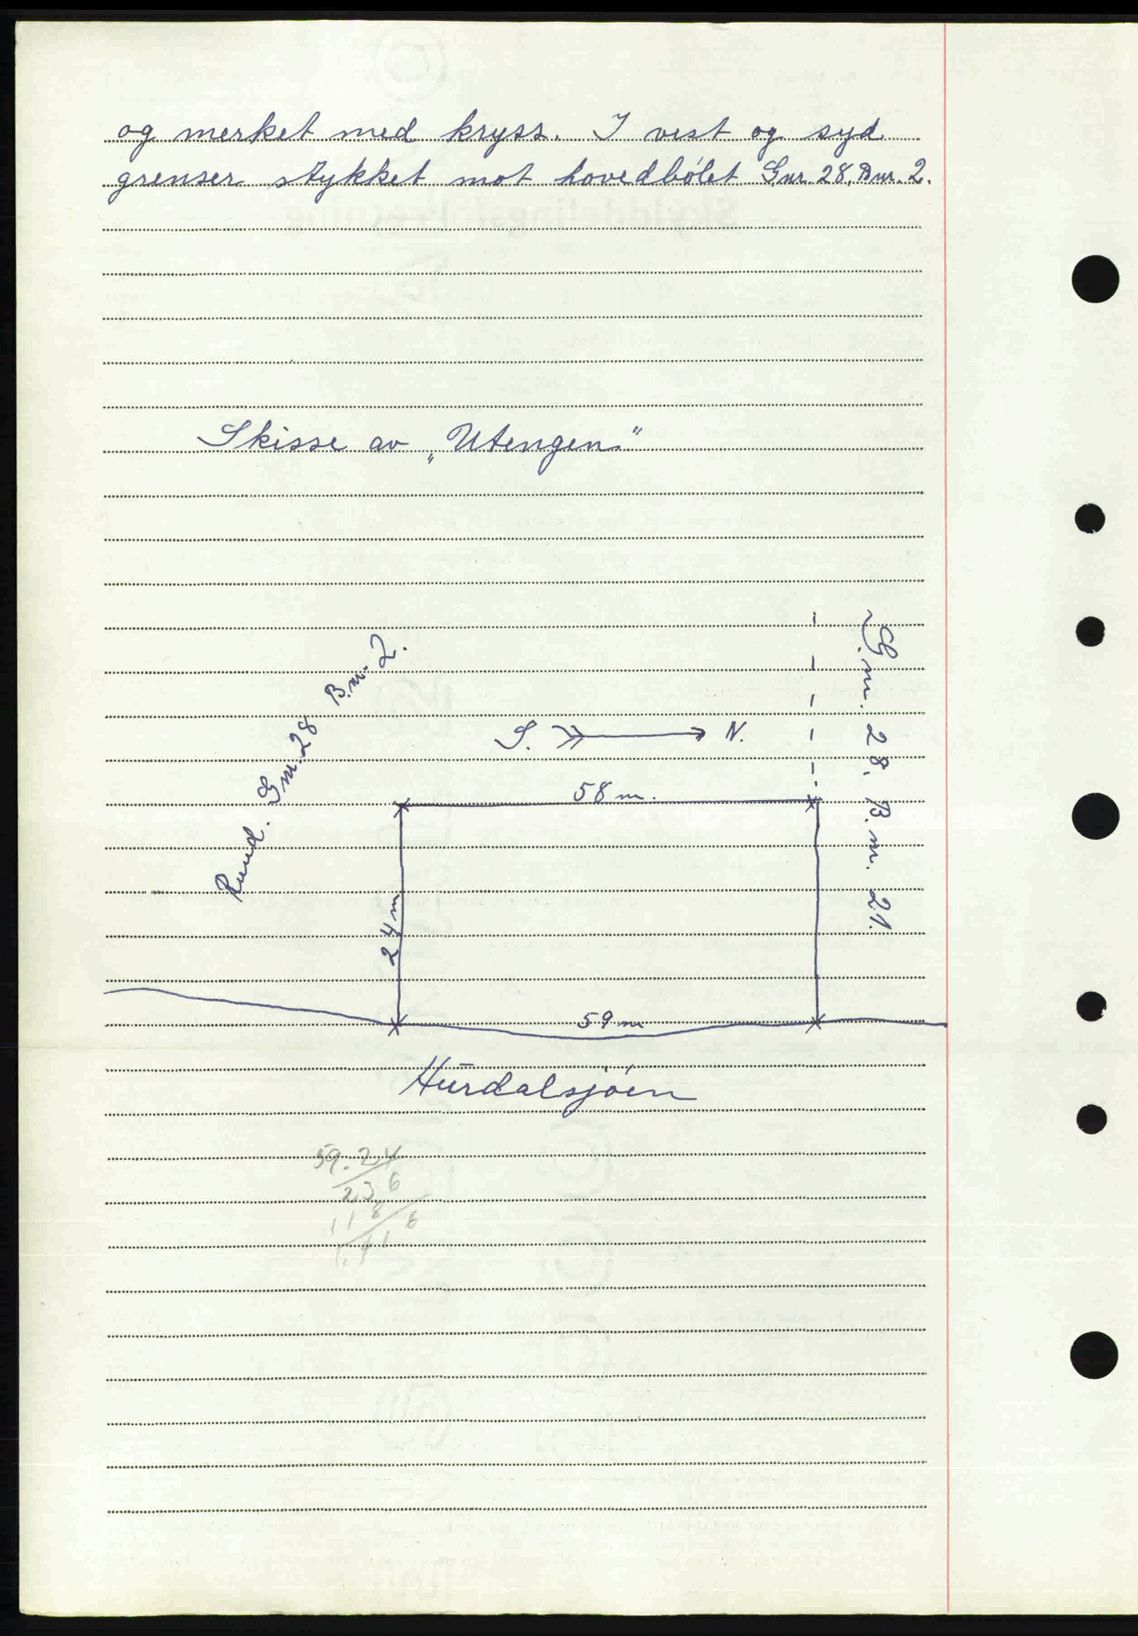 og merket med kryss. I vest og syd
grenser stykket mot hovedbølet Gnr. 28, Bnr. 2.
Skisse av „Utengen"
Ruud. Gnr. 28 B.nr. 2.
G.nr. 28, B.nr. 21.
S. N.
58 m.
24 m
59 m
Hurdalsjøen
59.24
236
118
1.416